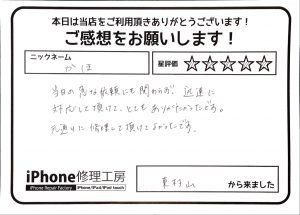 本日は当店をご利用頂きありがとうございます!
ご感想をお願いします!
ニックネーム
かほ
星評価 ☆☆☆☆☆
当日の急な依頼にも関わらず 迅速に
対応して頂けて、とてもありがたかったです。
元通りに修理して頂けてよかったです。
iPhone修理工房
iPhone Repair Factory iPhone/iPad/iPod touch
東村山 から来ました